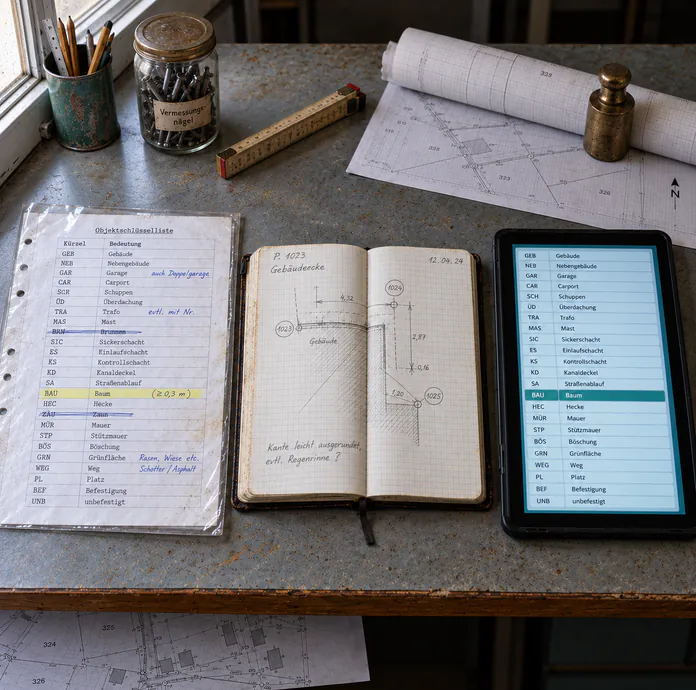 Vermessungs-
nägel
339
325
326
N
Objektschlüsselliste
Kürzel Bedeutung
GEB Gebäude
NEB Nebengebäude
GAR Garage auch Doppelgarage
CAR Carport
SCR Schuppen
ÜD Überdachung
TRA Trafo evtl. mit Nr.
MAS Mast
BRN Brunnen
SIC Sickerschacht
ES Einlaufschacht
KS Kontrollschacht
KD Kanaldeckel
SA Straßenablauf
BAU Baum (≥ 0,3 m)
HEC Hecke
ZÄU Zaun
MÜR Mauer
STP Stützmauer
BÖS Böschung
GRN Grünfläche Rasen, Wiese etc.
WEG Weg Schotter/Asphalt
PL Platz
BEF Befestigung
UNB unbefestigt
P. 1023
Gebäudeecke
12.04.24
1024
4,32
1023
Gebäude
2,87
0,16
1,20
1025
Kante leicht ausgerundet,
evtl. Regenrinne ?
GEB Gebäude
NEB Nebengebäude
GAR Garage
CAR Carport
SCH Schuppen
ÜD Überdachung
TRA Trafo
MAS Mast
SIC Sickerschacht
ES Einlaufschacht
KS Kontrollschacht
KD Kanaldeckel
SA Straßenablauf
BAU Baum
HEC Hecke
MÜR Mauer
STP Stützmauer
BÖS Böschung
GRN Grünfläche
WEG Weg
PL Platz
BEF Befestigung
UNB unbefestigt
324
326
325